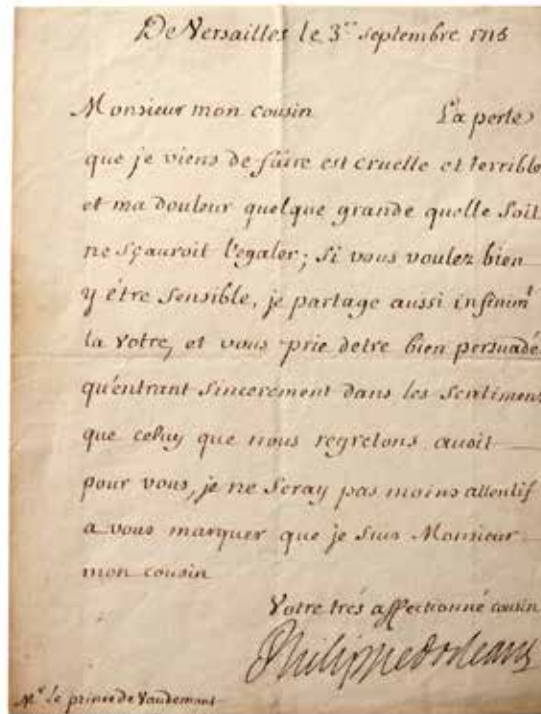 De Versailles le 3.me Septembre 1715
Monsieur mon cousin La perte
que je viens de faire est cruelle et terrible
et ma douleur quelque grande quelle soit
ne sçauroit l'egaler; si vous voulez bien
y étre sensible, je partage aussi infinimt
la votre, et vous prie detre bien persuadé
qu'entrant sincerement dans les sentimens
que celuy que nous regretons avoit
pour vous, je ne seray pas moins attentif
a vous marquer que je suis Monsieur
mon cousin
Votre trés affectionné cousin
Philippe dorleans
Mr. le prince de Vaudemont